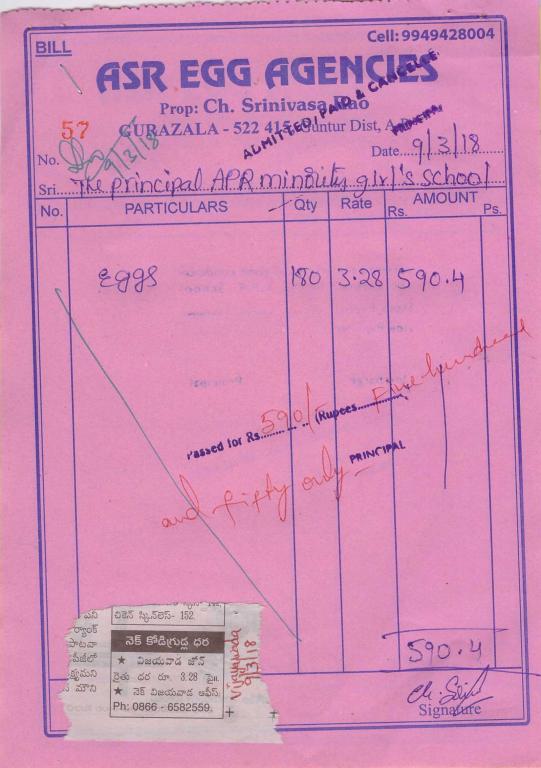 BILL
Cell: 9949428004
ASR EGG AGENCIES
Prop: Ch. Srinivasa Rao
GURAZALA - 522 415, Guntur Dist, A.P.
ADMITTED, PAID & CANCELLED
PRINCIPAL
57
No.
9/3/18
Date 9/3/18
Sri The principal APR minority girl's school
No. PARTICULARS Qty Rate AMOUNT
Rs. Ps.
Eggs 180 3.28 590.4
Passed for Rs. 590/- (Rupees Five hundred
PRINCIPAL
and fifty only
590.4
Signature
చికెన్ స్కిన్‌లెస్- 152
నెక్ కోడిగ్రుడ్ల ధర
★ విజయవాడ జోన్
రైతు ధర రూ. 3.28 పై॥
★ నెక్ విజయవాడ ఆఫీస్
Ph: 0866 - 6582559
Vijayawada
9/3/18